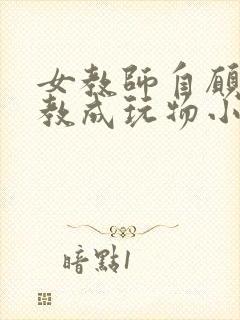 女教師自願
教成玩物小
暗點1